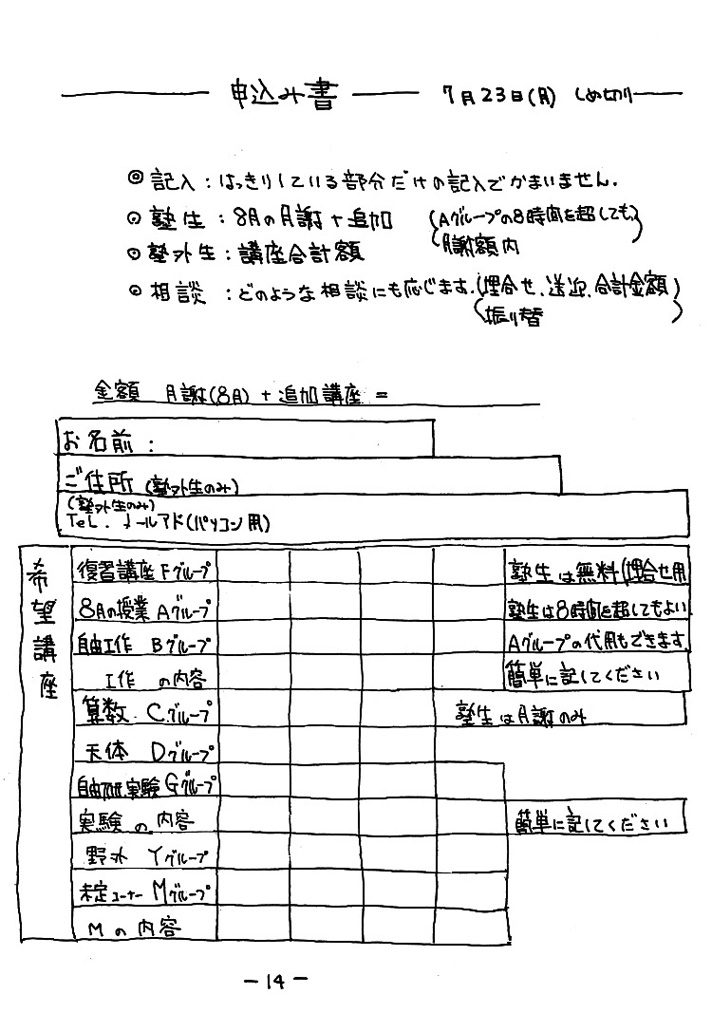 申込み書 7月23日(月) しめ切り
◎ 記入：はっきりしている部分だけの記入でかまいません.
⊙ 塾生：8月の月謝+追加 (Aグループの8時間を超しても、
月謝額内)
⊙ 塾外生：講座合計額
⊙ 相談：どのような相談にも応じます.(埋合せ、送迎、合計金額
振り替)
金額 月謝(8月)+追加講座 =
お名前：
ご住所 (塾外生のみ)
(塾外生のみ)
TeL. メールアド(パソコン用)
希望講座
復習講座 Fグループ 塾生は無料(埋合せ用
8月の授業 Aグループ 塾生は8時間を超してもよい
自由工作 Bグループ Aグループの代用もできます.
工作 の内容 簡単に記してください
算数 Cグループ 塾生は月謝のみ
天体 Dグループ
自由研実験 Gグループ
実験 の 内容 簡単に記してください
野外 Yグループ
未定コーナー Mグループ
M の 内容
-14-